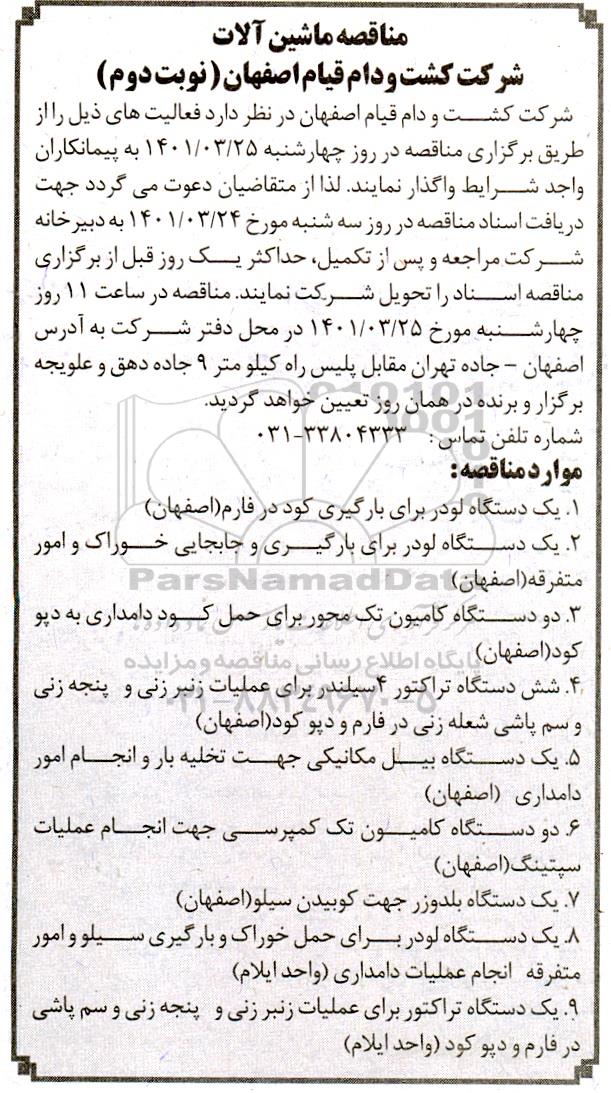 مناقصه ماشین آلات
شرکت کشت و دام قیام اصفهان (نوبت دوم)
شرکت کشت و دام قیام اصفهان در نظر دارد فعالیت های ذیل را از
طریق برگزاری مناقصه در روز چهارشنبه ۱۴۰۱/۰۳/۲۵ به پیمانکاران
واجد شرایط واگذار نمایند. لذا از متقاضیان دعوت می گردد جهت
دریافت اسناد مناقصه در روز سه شنبه مورخ ۱۴۰۱/۰۳/۲۴ به دبیرخانه
شرکت مراجعه و پس از تکمیل، حداکثر یک روز قبل از برگزاری
مناقصه اسناد را تحویل شرکت نمایند. مناقصه در ساعت ۱۱ روز
چهارشنبه مورخ ۱۴۰۱/۰۳/۲۵ در محل دفتر شرکت به آدرس
اصفهان – جاده تهران مقابل پلیس راه کیلو متر ۹ جاده دهق و علویجه
برگزار و برنده در همان روز تعیین خواهد گردید.
شماره تلفن تماس: ۰۳۱-۳۳۸۰۴۳۳۳
موارد مناقصه:
۱. یک دستگاه لودر برای بارگیری کود در فارم(اصفهان)
۲. یک دستگاه لودر برای بارگیری و جابجایی خوراک و امور
متفرقه(اصفهان)
ParsNamadData
۳. دو دستگاه کامیون تک محور برای حمل کود دامداری به دپو
کود(اصفهان)
پایگاه اطلاع رسانی مناقصه و مزایده
۴. شش دستگاه تراکتور ۴سیلندر برای عملیات زنبر زنی و پنجه زنی
۰۲۱-۸۸۳۴۹۶۷۰-۵
و سم پاشی شعله زنی در فارم و دپو کود(اصفهان)
۵. یک دستگاه بیل مکانیکی جهت تخلیه بار و انجام امور
دامداری (اصفهان)
۶. دو دستگاه کامیون تک کمپرسی جهت انجام عملیات
سپتینگ(اصفهان)
۷. یک دستگاه بلدوزر جهت کوبیدن سیلو(اصفهان)
۸. یک دستگاه لودر برای حمل خوراک و بارگیری سیلو و امور
متفرقه انجام عملیات دامداری (واحد ایلام)
۹. یک دستگاه تراکتور برای عملیات زنبر زنی و پنجه زنی و سم پاشی
در فارم و دپو کود (واحد ایلام)